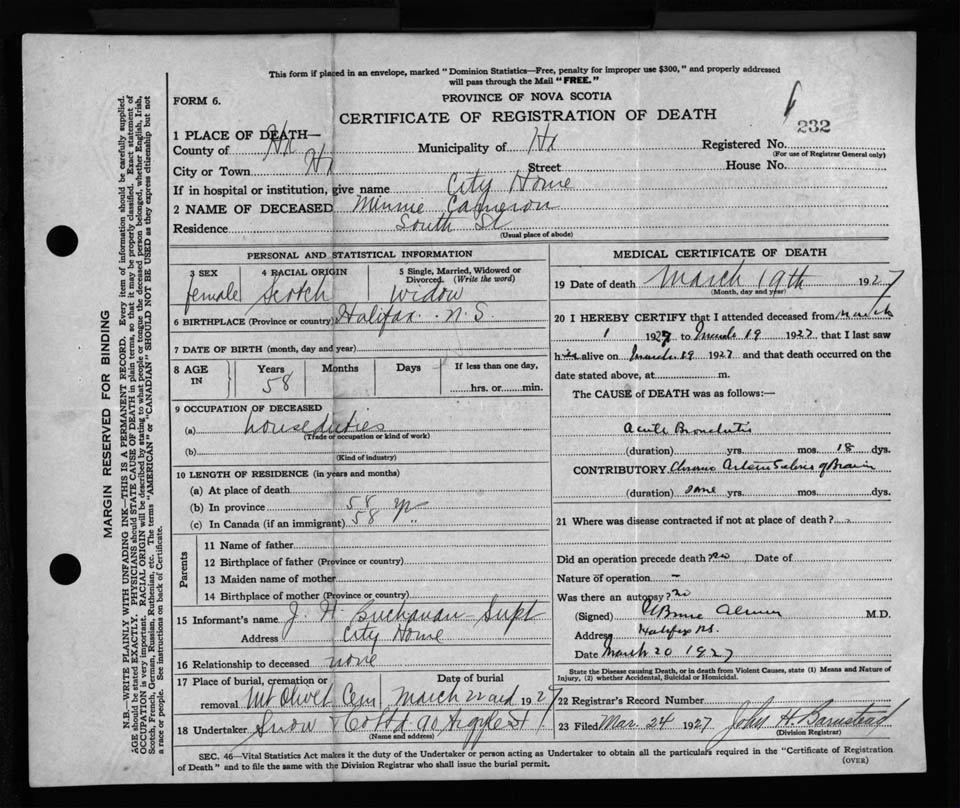 This form if placed in an envelope, marked "Dominion Statistics—Free, penalty for improper use $300," and properly addressed
will pass through the Mail "FREE."
FORM 6.
PROVINCE OF NOVA SCOTIA
CERTIFICATE OF REGISTRATION OF DEATH
232
1 PLACE OF DEATH—
County of Hx Municipality of Hx Registered No.
(For use of Registrar General only)
City or Town Hx Street House No.
If in hospital or institution, give name City Home
2 NAME OF DECEASED Minnie Cameron
Residence South St
(Usual place of abode)
PERSONAL AND STATISTICAL INFORMATION
3 SEX 4 RACIAL ORIGIN 5 Single, Married, Widowed or
Divorced. (Write the word)
female Scotch widow
6 BIRTHPLACE (Province or country) Halifax N.S.
7 DATE OF BIRTH (month, day and year)
8 AGE IN Years Months Days If less than one day,
58 hrs. or min.
9 OCCUPATION OF DECEASED
(a) houseduties
(Trade or occupation or kind of work)
(b)
(Kind of industry)
10 LENGTH OF RESIDENCE (in years and months)
(a) At place of death
(b) In province 58 yr
(c) In Canada (if an immigrant) 58 "
Parents
11 Name of father
12 Birthplace of father (Province or country)
13 Maiden name of mother
14 Birthplace of mother (Province or country)
15 Informant's name J. H. Buchanan Supt
Address City Home
16 Relationship to deceased none
17 Place of burial, cremation or Date of burial
removal Mt Olivet Cem March 22nd 1927
18 Undertaker Snow & Co Ltd 90 Argyle St
(Name and address)
MEDICAL CERTIFICATE OF DEATH
19 Date of death March 19th 1927
(Month, day and year)
20 I HEREBY CERTIFY that I attended deceased from March
1 1927 to March 19 1927 that I last saw
her alive on March 19 1927 and that death occurred on the
date stated above, at m.
The CAUSE of DEATH was as follows:—
Acute Bronchitis
(duration) yrs. mos. 18 dys.
CONTRIBUTORY. Chronic Arterio Sclerosis of Brain
(duration) some yrs. mos. dys.
21 Where was disease contracted if not at place of death?
Did an operation precede death? no Date of
Nature of operation —
Was there an autopsy? no
(Signed) M.D.
Address Halifax N.S.
Date March 20 1927
State the Disease causing Death, or in death from Violent Causes, state (1) Means and Nature of
Injury, (2) whether Accidental, Suicidal or Homicidal.
22 Registrar's Record Number
23 Filed Mar. 24 1927 John H. Barnstead
(Division Registrar)
SEC. 46—Vital Statistics Act makes it the duty of the Undertaker or person acting as Undertaker to obtain all the particulars required in the "Certificate of Registration
of Death" and to file the same with the Division Registrar who shall issue the burial permit.
(OVER)
MARGIN RESERVED FOR BINDING
N.B.—WRITE PLAINLY WITH UNFADING INK—THIS IS A PERMANENT RECORD. Every item of information should be carefully supplied.
AGE should be stated EXACTLY. PHYSICIANS should STATE CAUSE OF DEATH in plain terms, so that it may be properly classified. Exact statement of
OCCUPATION is very important. RACIAL ORIGIN will be described by stating to what people or tongue the deceased person belonged, whether English, Irish,
Scotch, French, German, Russian, Ruthenian, etc. The terms "AMERICAN" or "CANADIAN" SHOULD NOT BE USED as they express citizenship but not
a race or people. See instructions on back of Certificate.